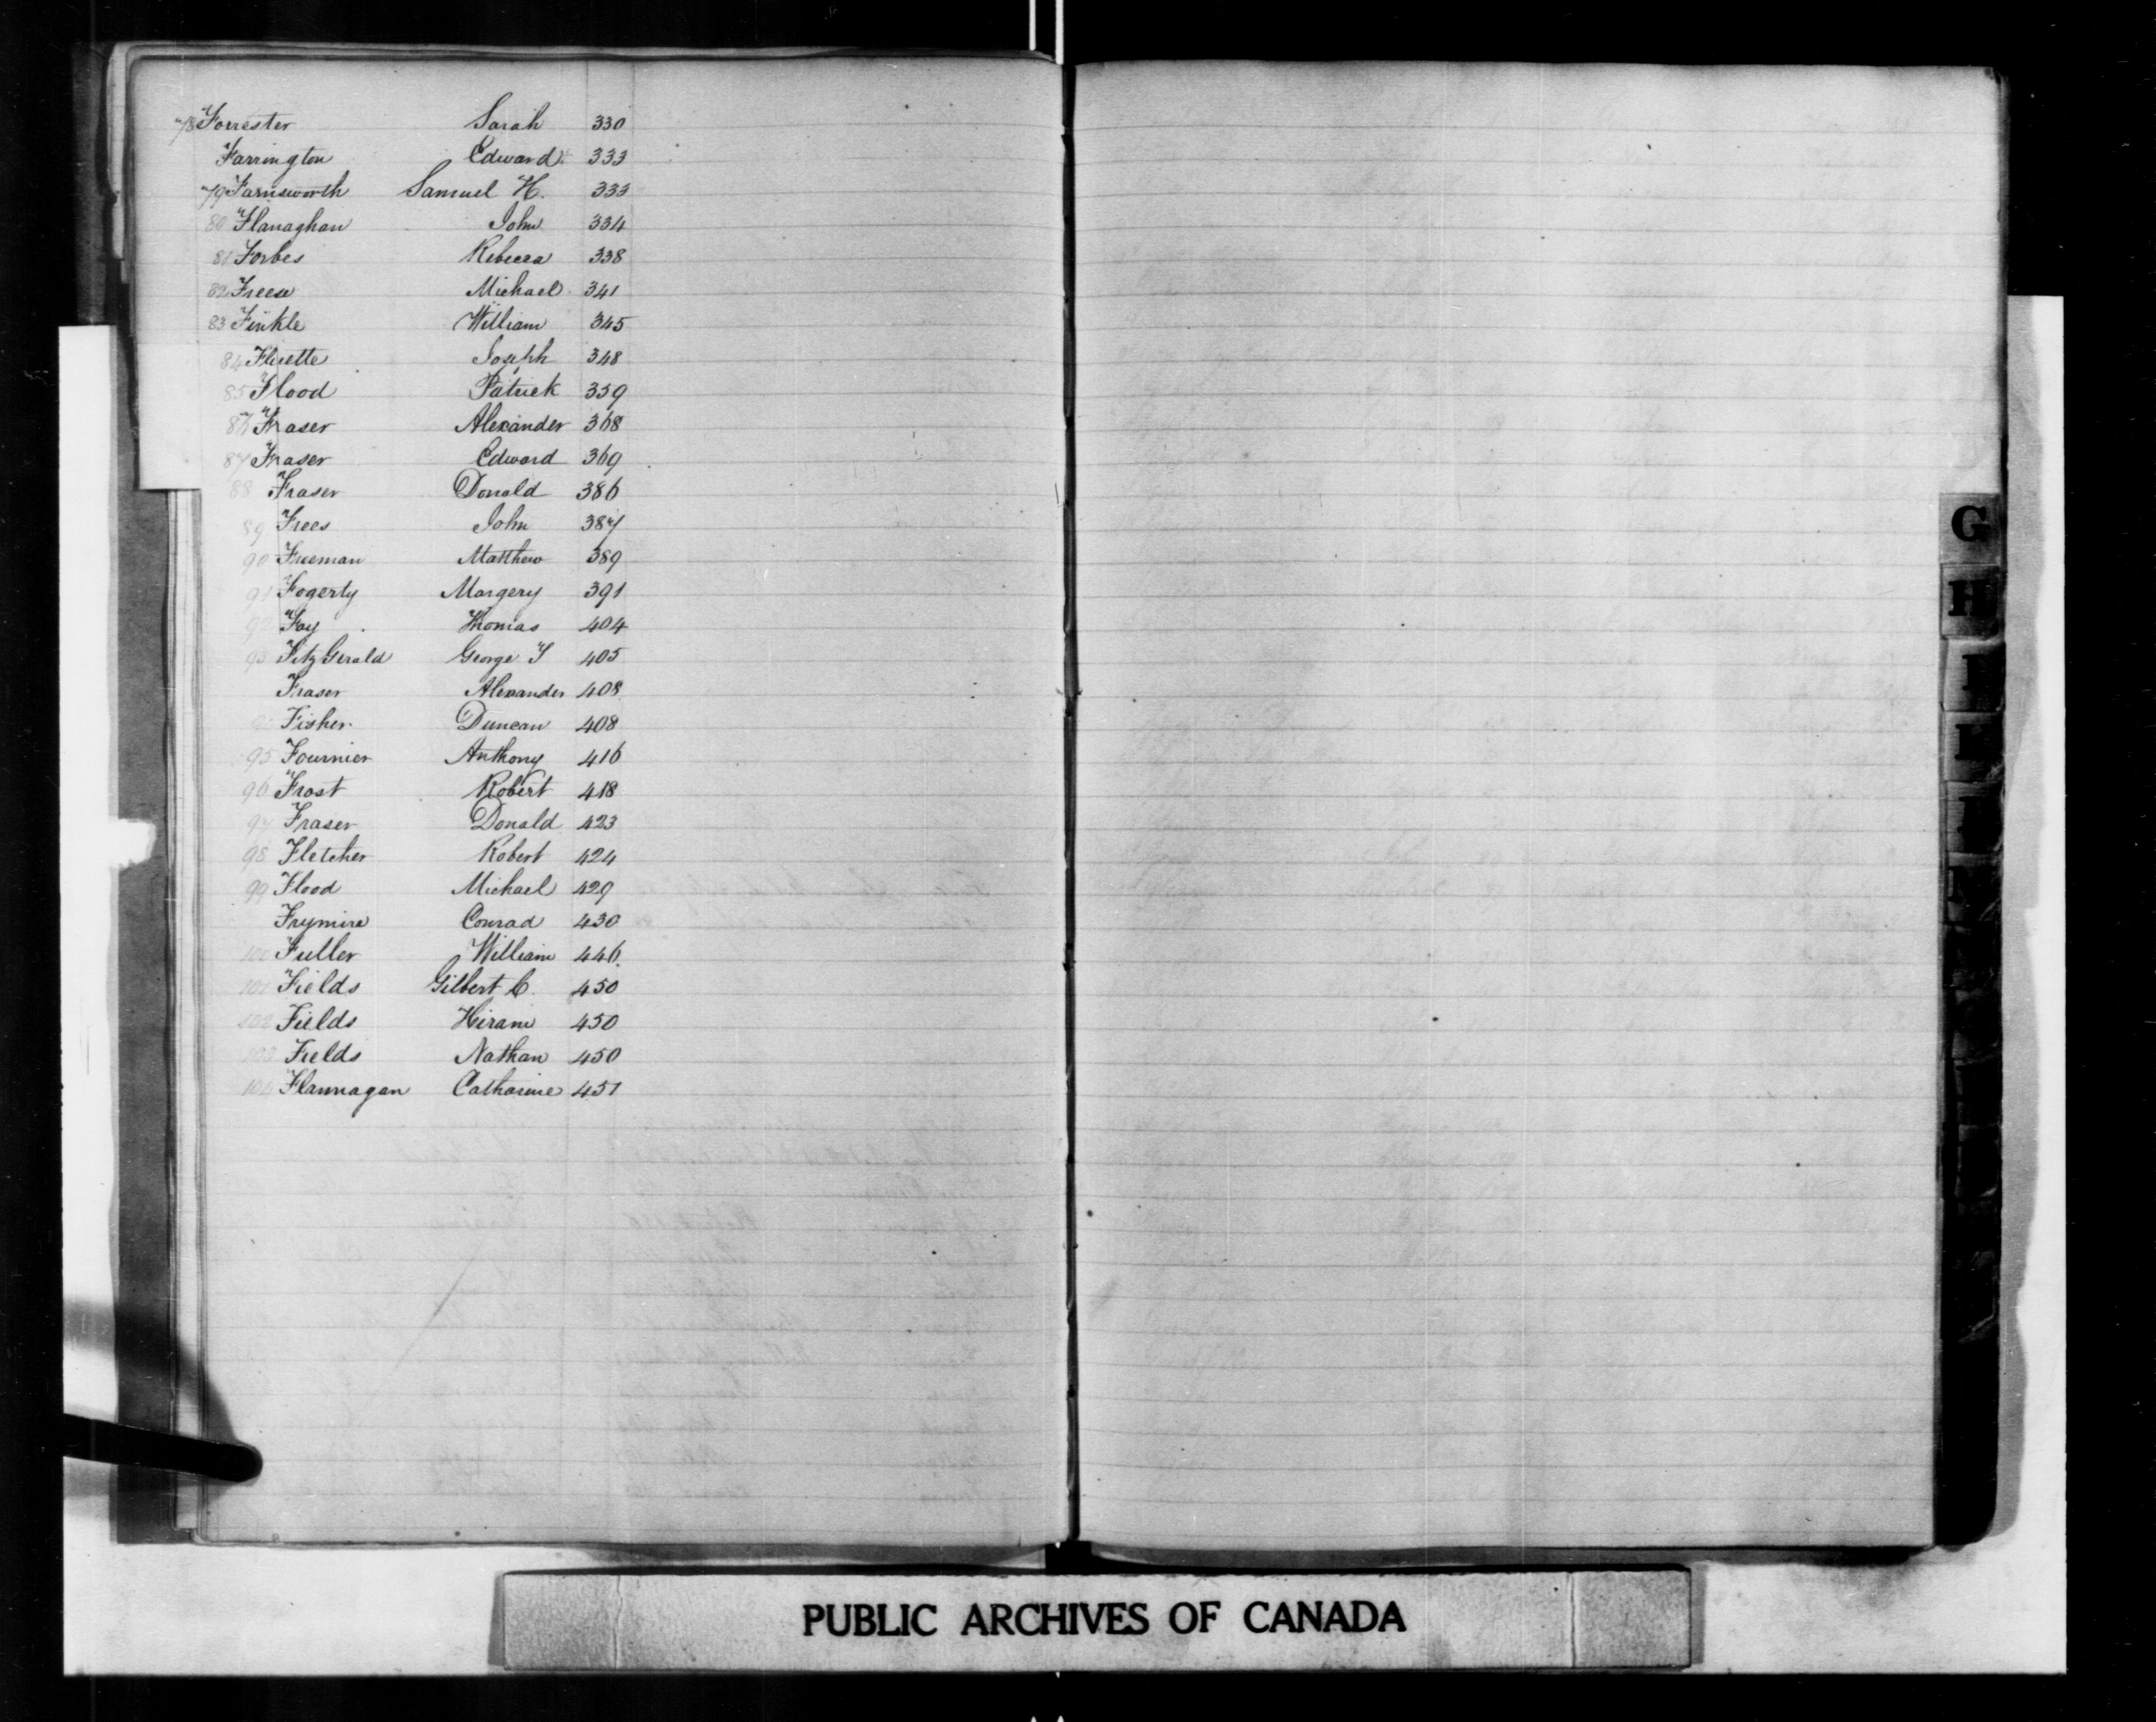 78 Forrester Sarah 330
Farrington Edward 333
79 Farnsworth Samuel H. 333
80 Flanaghan John 334
81 Forbes Rebecca 338
82 Freese Michael 341
83 Finkle William 345
84 Joseph 348
85 Flood Patrick 359
86 Fraser Alexander 368
87 Fraser Edward 369
88 Fraser Donald 386
89 Frees John 387
90 Freeman Matthew 389
91 Fogerty Margery 391
92 Foy Thomas 404
93 FitzGerald George 405
Fraser Alexander 408
Fisher Duncan 408
95 Fournier Anthony 416
96 Frost Robert 418
97 Fraser Donald 423
98 Fletcher Robert 424
99 Flood Michael 429
Frymire Conrad 430
100 Fuller William 446
101 Fields Gilbert C. 450
102 Fields Hiram 450
103 Fields Nathan 450
104 Flannagan Catharine 451
G
H
PUBLIC ARCHIVES OF CANADA